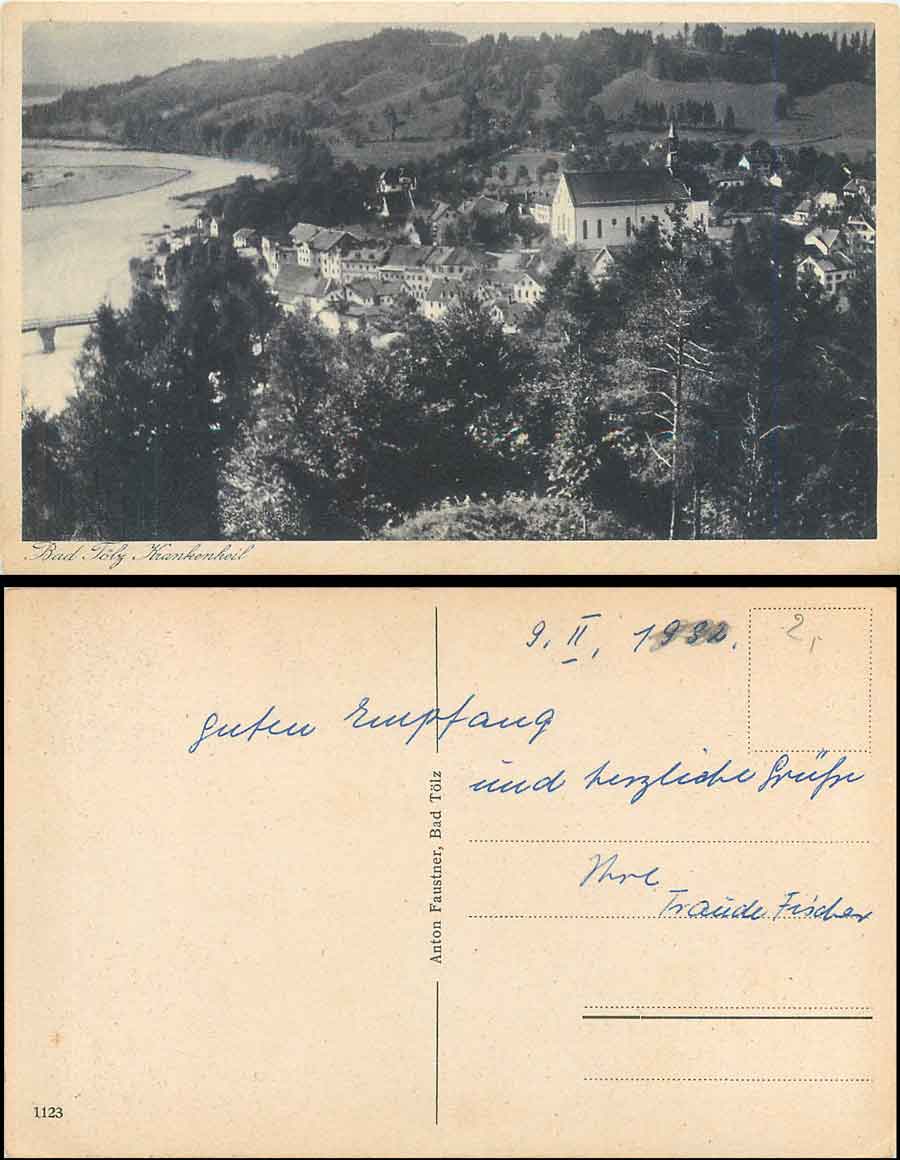 Bad Tölz Krankenheil
9. II. 1932.
2,
guten Empfang
und herzliche Grüße
Ihre
Traude Fischer
Anton Faustner, Bad Tölz
1123